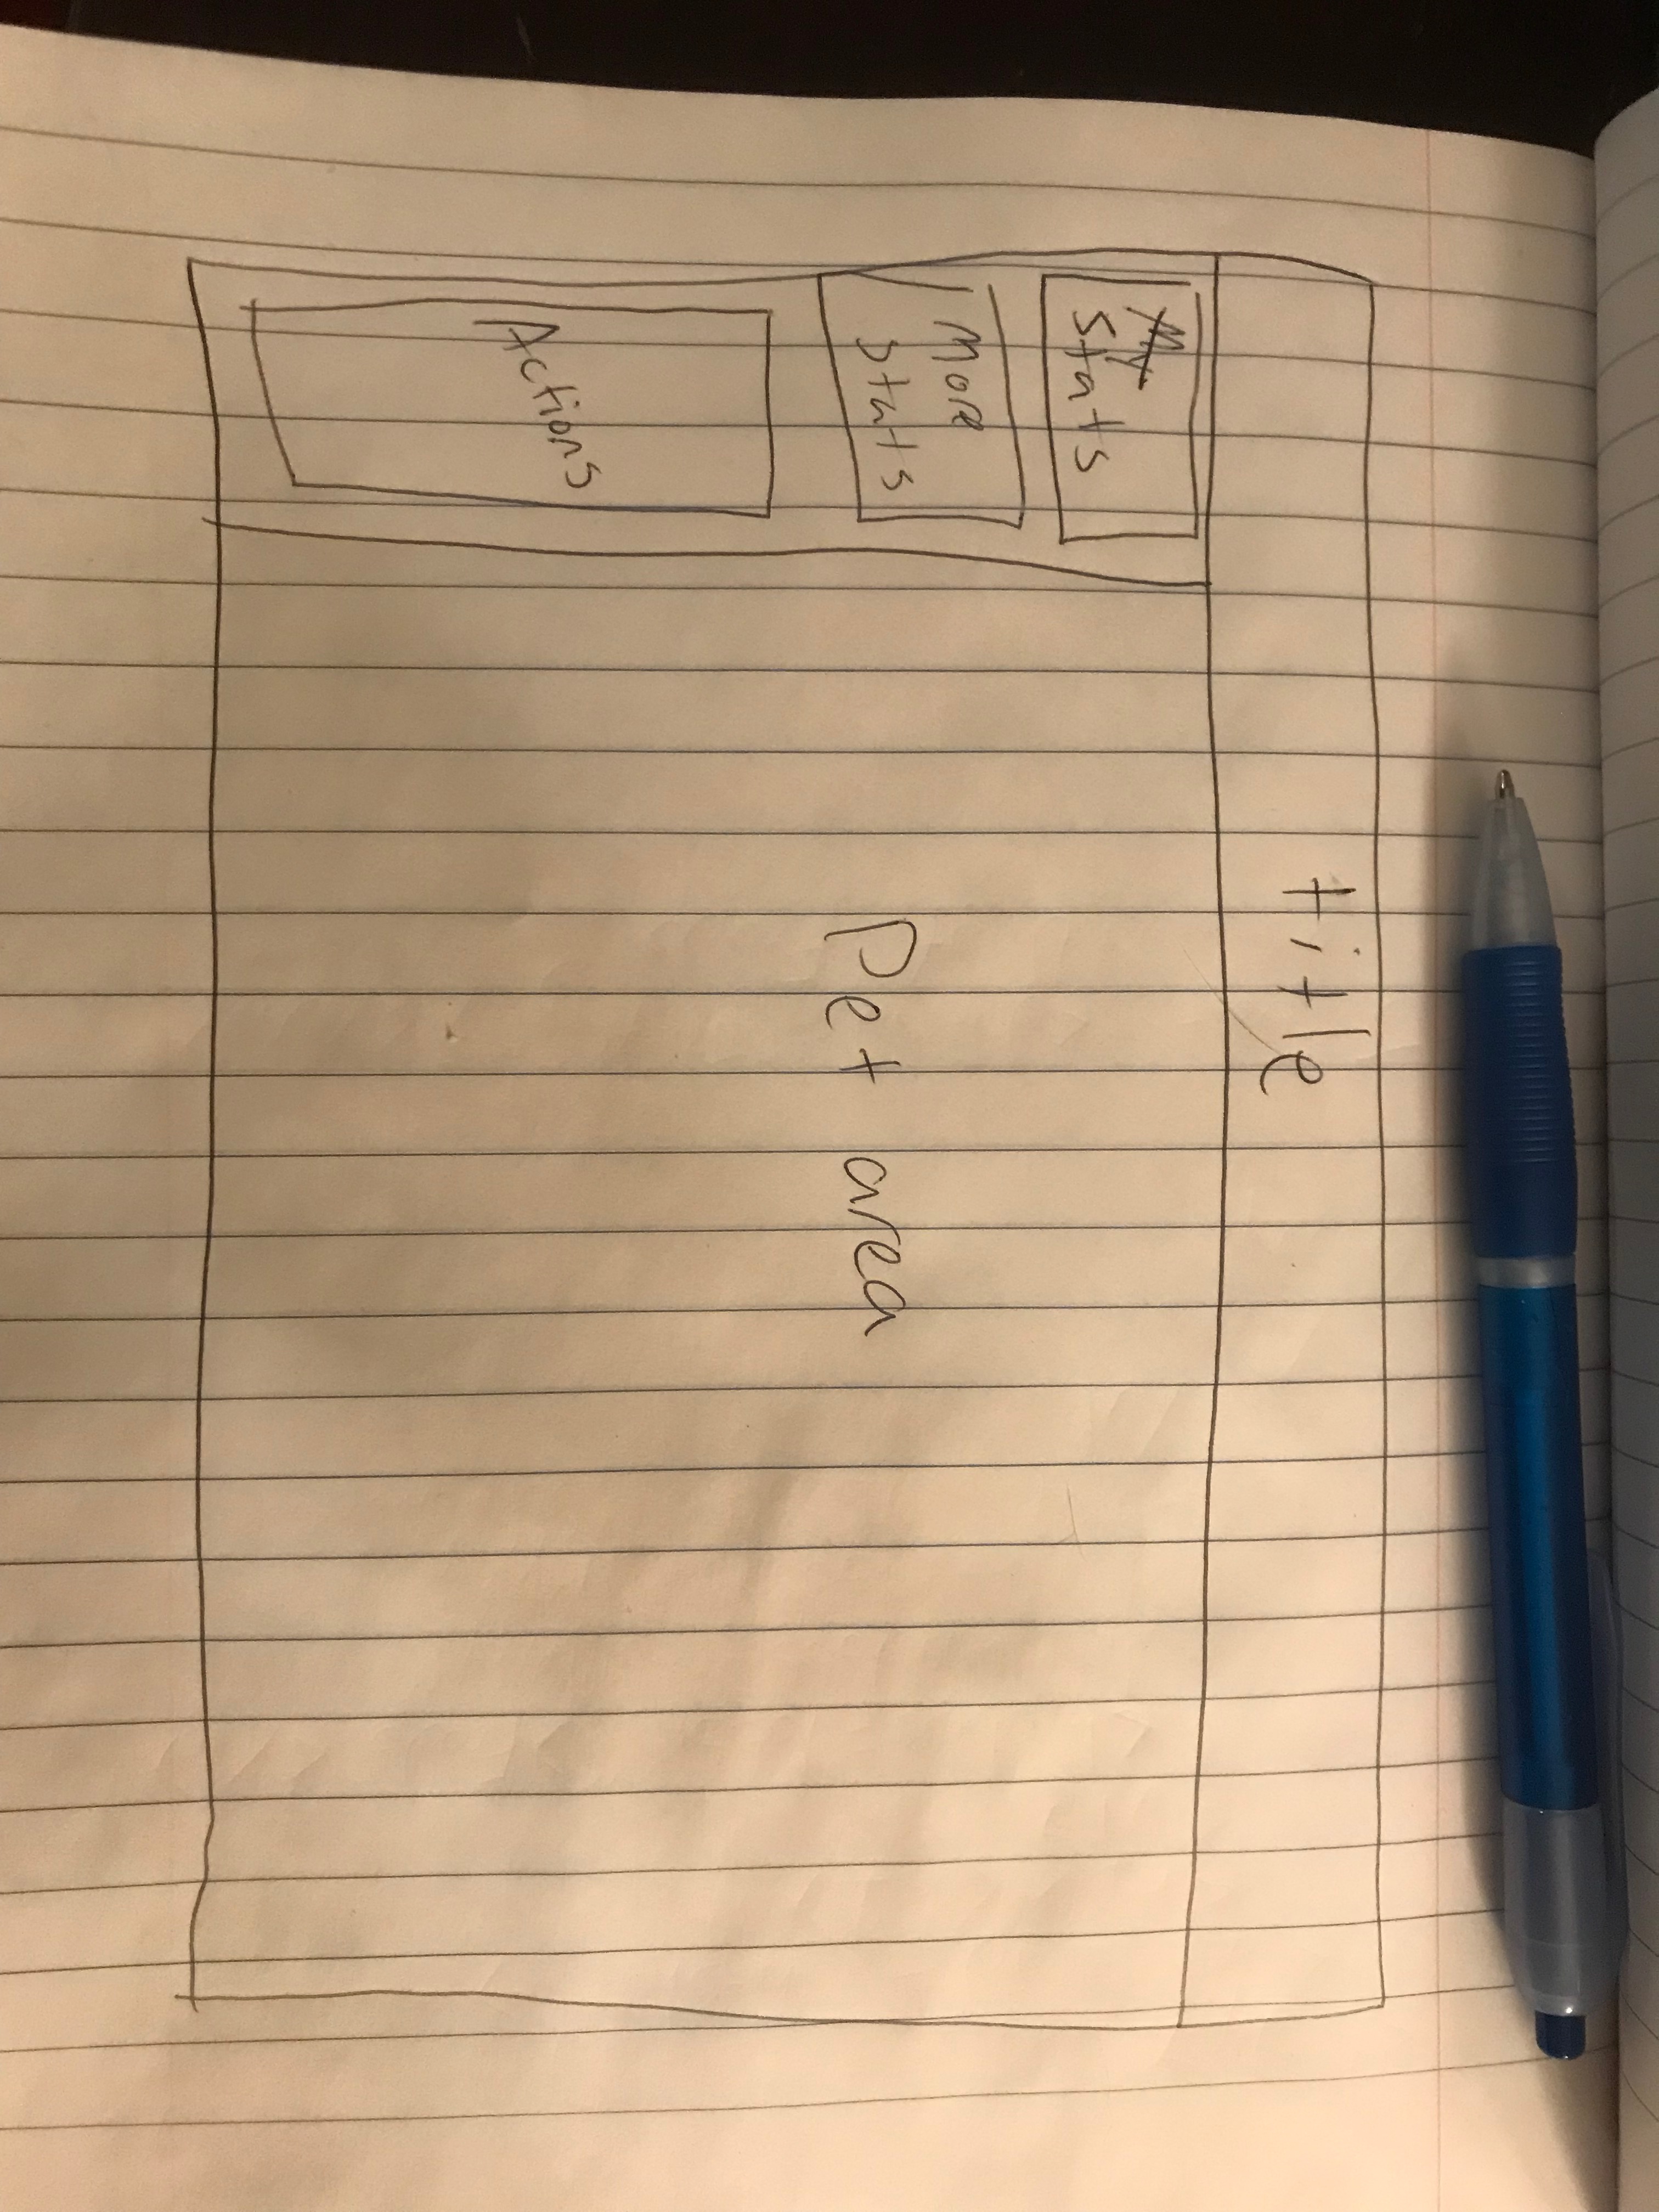 title
Stats
More
Stats
Actions
Pet area